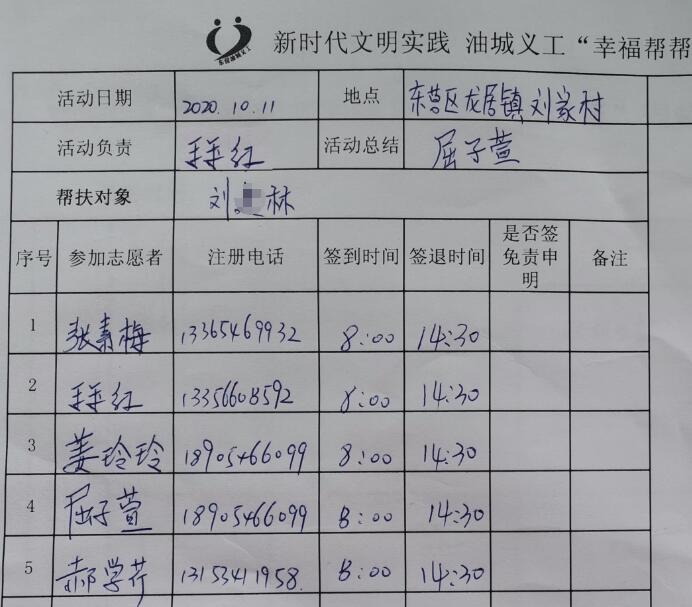 东营油城义工
新时代文明实践 油城义工“幸福帮帮
活动日期 2020.10.11 地点 东营区龙居镇刘家村
活动负责 红 活动总结 屈子萱
帮扶对象 刘 林
序号 参加志愿者 注册电话 签到时间 签退时间 是否签免责申明 备注
1 张素梅 13365469932 8:00 14:30
2 红 13356608592 8:00 14:30
3 姜玲玲 18905466099 8:00 14:30
4 屈子萱 18905466099 8:00 14:30
5 郝学芹 13153411958. 8:00 14:30